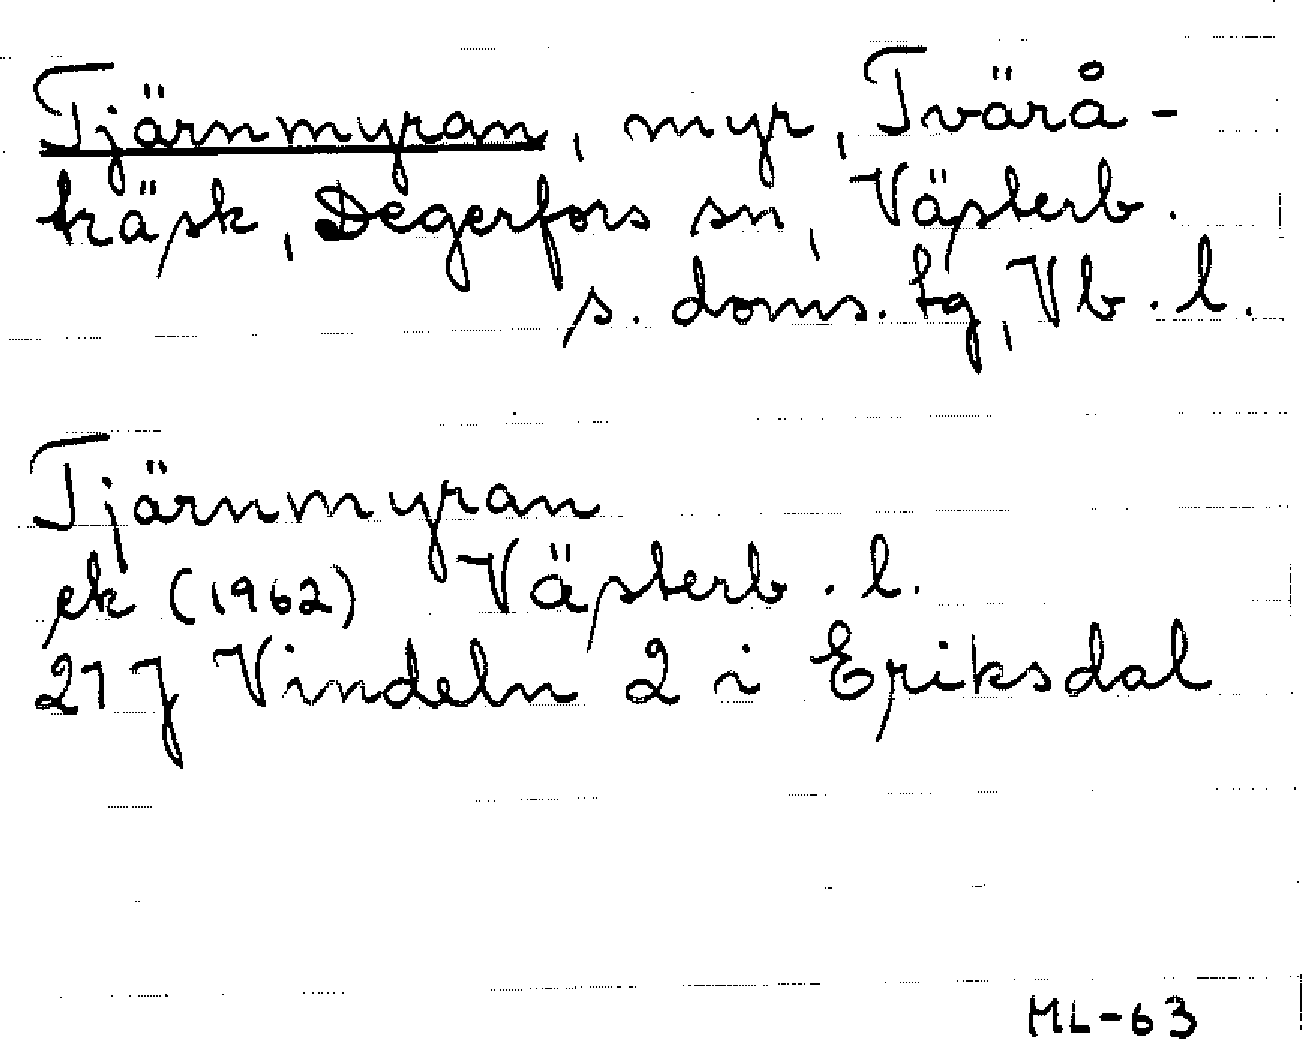 Tjärnmyran, myr, Tvärå-
träsk, Degerfors sn, Västerb.
s. doms. tg, Vb. l.
Tjärnmyran
ek (1962) Västerb. l.
21 J Vindeln 2 i Eriksdal
ML-63